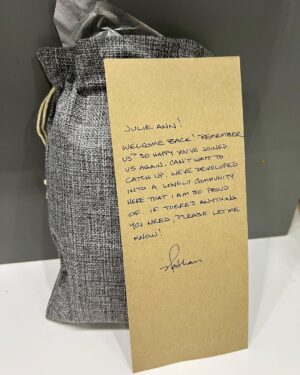 JULIE ANN!
WELCOME BACK! REMEMBER
US? SO HAPPY YOU'VE JOINED
US AGAIN. CAN'T WAIT TO
CATCH UP. WE'VE DEVELOPED
INTO A LOVELY COMMUNITY
HERE THAT I AM SO PROUD
OF. IF THERE'S ANYTHING
YOU NEED, PLEASE LET ME
KNOW!
Nathan